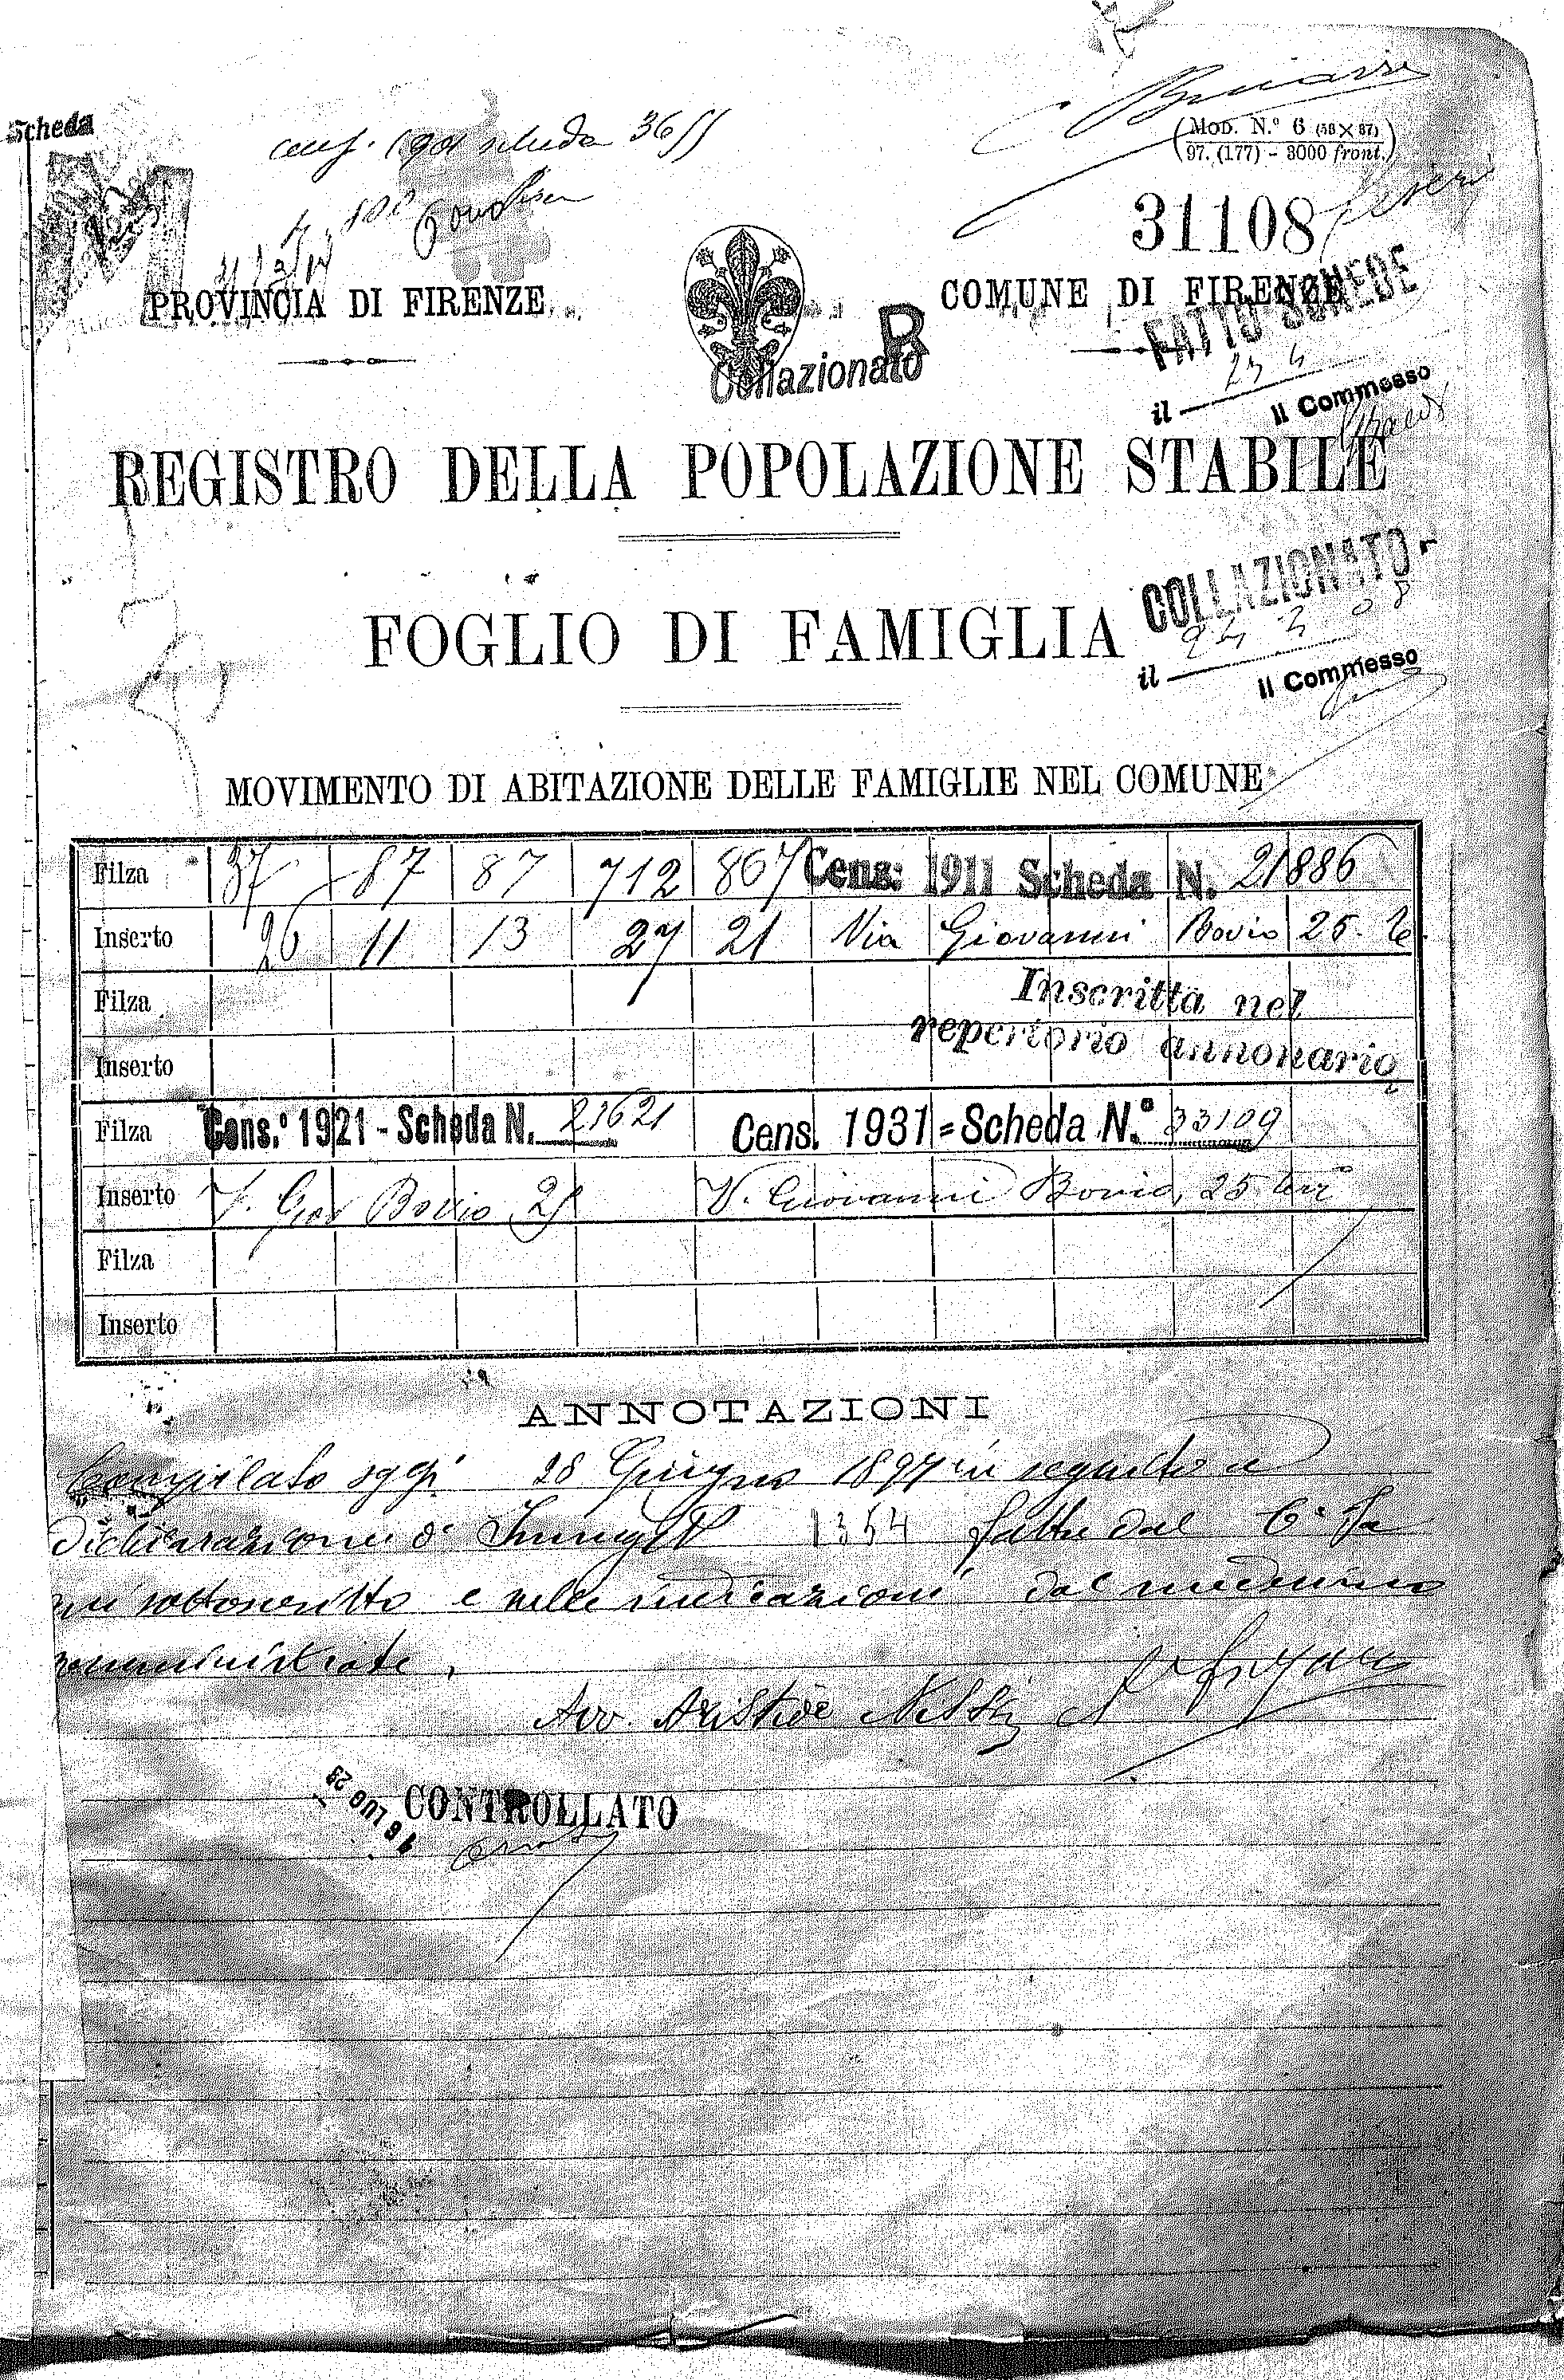 Scheda
scheda 36
(MOD. N.º 6 (58×87)
97. (177) - 3000 front.)
31108
PROVINCIA DI FIRENZE
COMUNE DI FIRENZE
R
Collazionato
FATTO SCHEDE
il 23 4
Il Commesso
REGISTRO DELLA POPOLAZIONE STABILE
COLLAZIONATO
FOGLIO DI FAMIGLIA
il 24 3 08
Il Commesso
MOVIMENTO DI ABITAZIONE DELLE FAMIGLIE NEL COMUNE
Filza 37 87 87 712 867 Cens: 1911 Scheda N. 21886
Inserto 26 11 13 27 21 Via Giovanni Bovio 25. te
Filza Inscritta nel
repertorio annonario
Inserto
Filza Cens.º 1921 - Scheda N. 23621 Cens. 1931 = Scheda N.º 33109
Inserto V. Gio Bovio 25 V. Giovanni Bovio, 25 terr
Filza
Inserto
ANNOTAZIONI
Compilato oggi 28 Giugno 1897 in seguito a
dichiarazione di 1354 fatta dal C. Fa
sottoscritto e nelle indicazioni dal medesimo
somministrate.
Avv. Aristide
16 LUG 23
CONTROLLATO